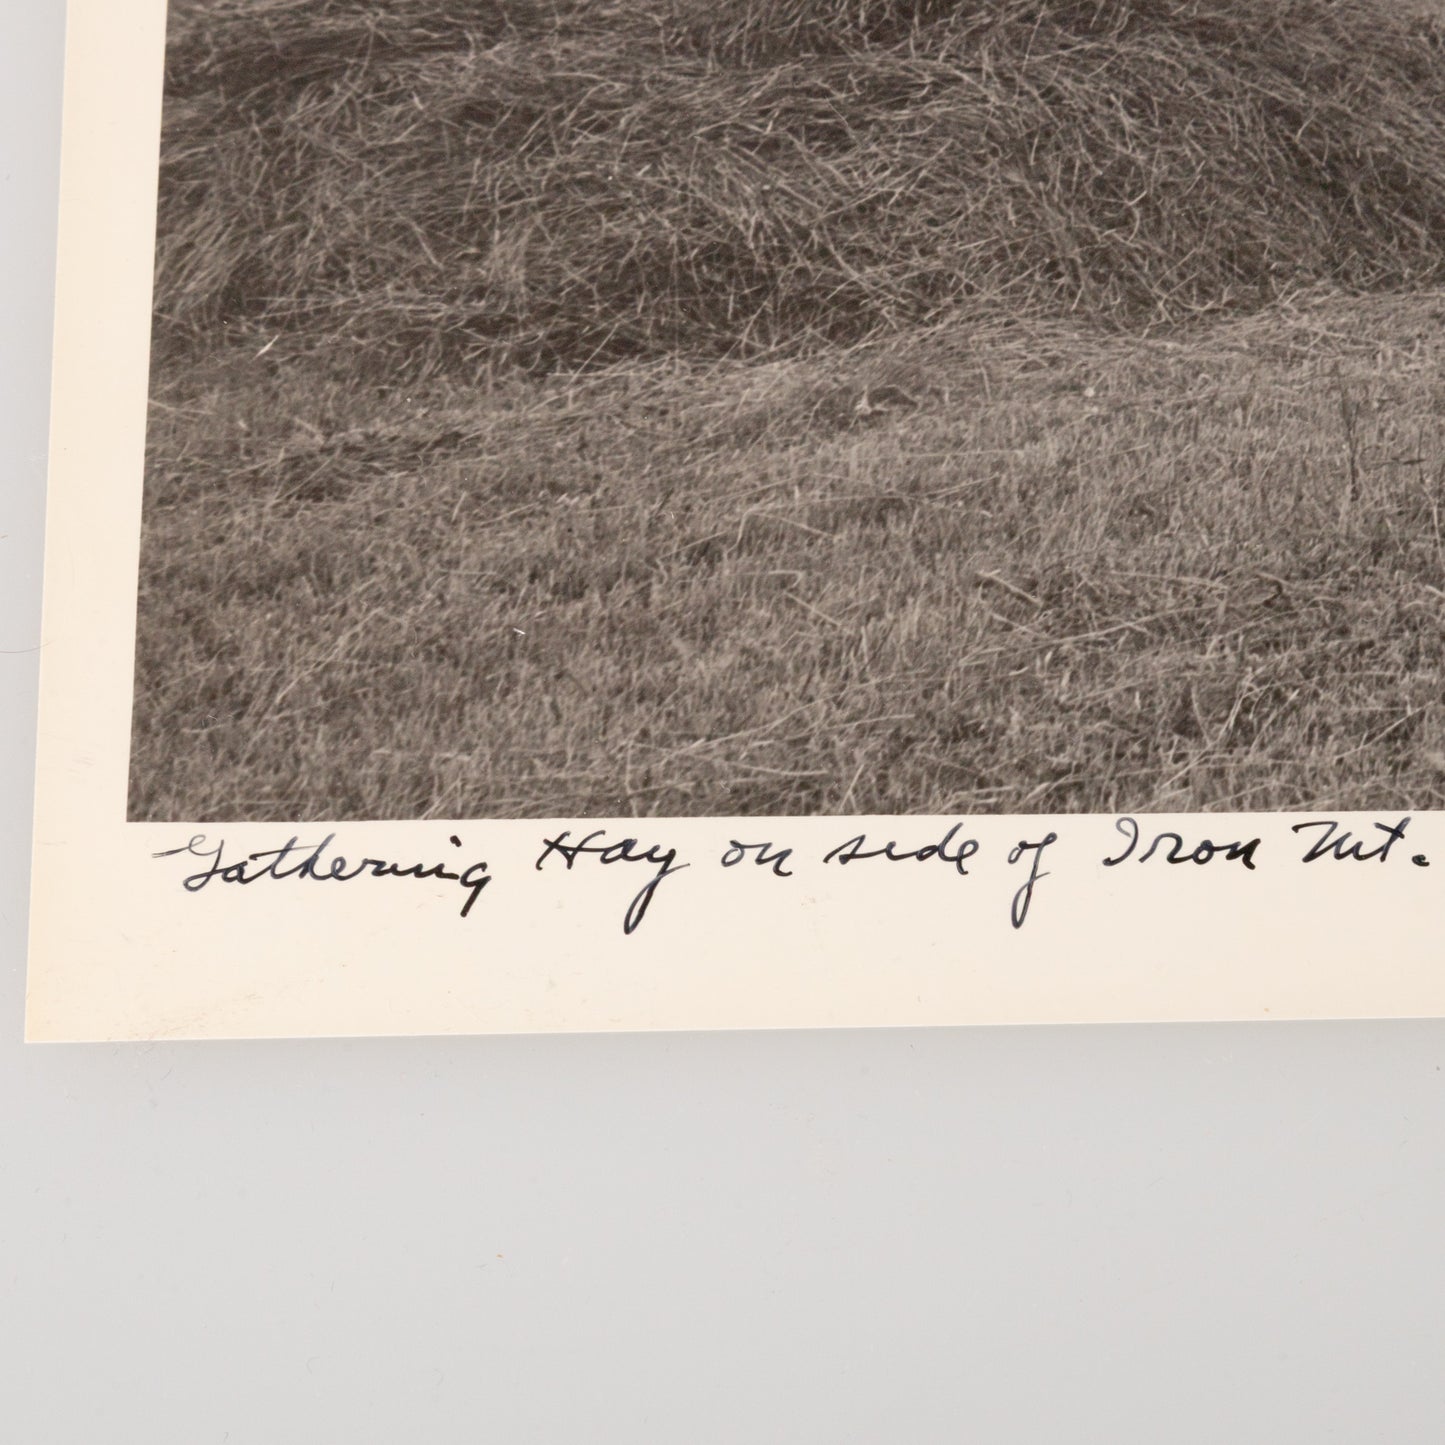 Gathering Hay on side of Iron Mt.